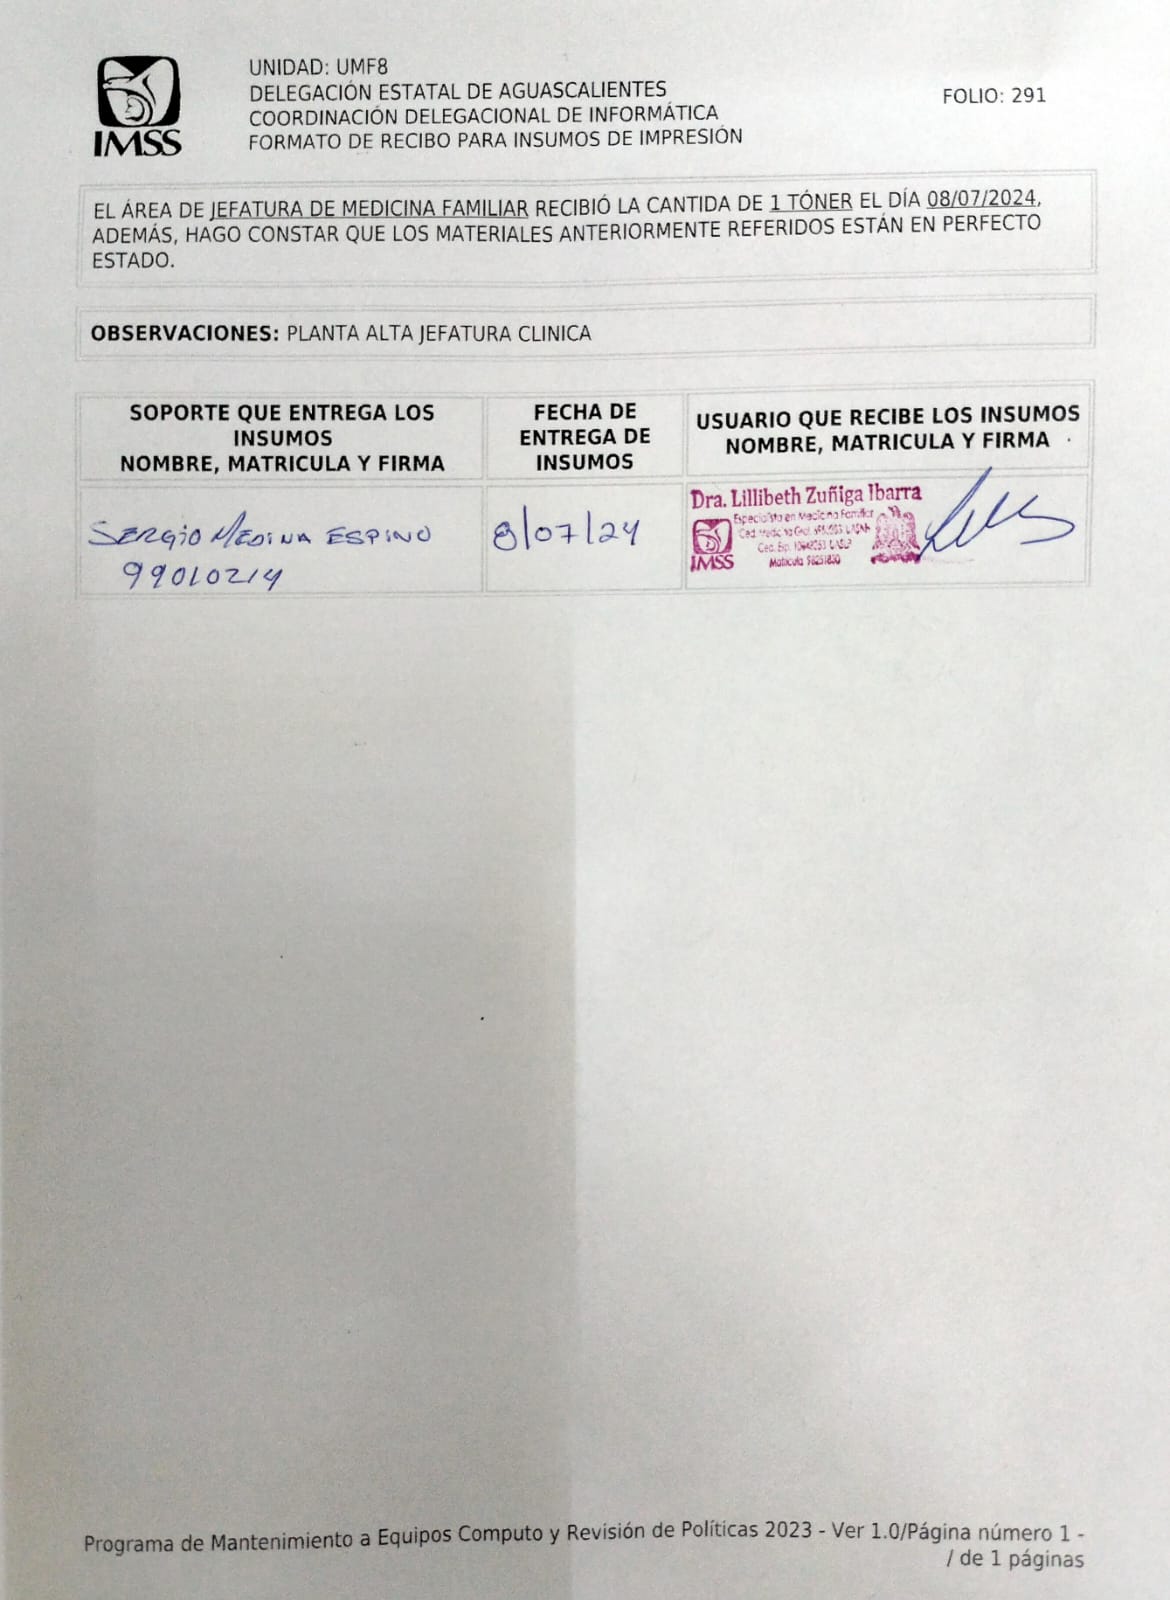 UNIDAD: UMF8
DELEGACIÓN ESTATAL DE AGUASCALIENTES
COORDINACIÓN DELEGACIONAL DE INFORMÁTICA
FORMATO DE RECIBO PARA INSUMOS DE IMPRESIÓN
FOLIO: 291
IMSS
EL ÁREA DE JEFATURA DE MEDICINA FAMILIAR RECIBIÓ LA CANTIDA DE 1 TÓNER EL DÍA 08/07/2024,
ADEMÁS, HAGO CONSTAR QUE LOS MATERIALES ANTERIORMENTE REFERIDOS ESTÁN EN PERFECTO
ESTADO.
OBSERVACIONES: PLANTA ALTA JEFATURA CLINICA
SOPORTE QUE ENTREGA LOS
INSUMOS
NOMBRE, MATRICULA Y FIRMA
FECHA DE
ENTREGA DE
INSUMOS
USUARIO QUE RECIBE LOS INSUMOS
NOMBRE, MATRICULA Y FIRMA
SERGIO MEDINA ESPINO
99010214
8/07/24
Dra. Lillibeth Zuñiga Ibarra
Especialista en Medicina Familiar
IMSS
Matricula
Programa de Mantenimiento a Equipos Computo y Revisión de Políticas 2023 - Ver 1.0/Página número 1 -
/ de 1 páginas